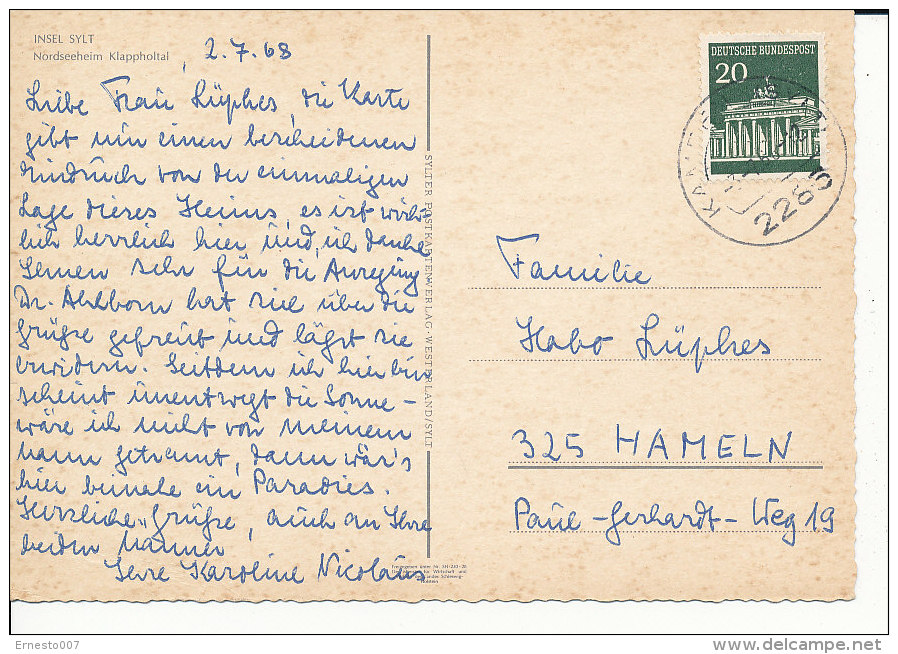 INSEL SYLT
Nordseeheim Klappholtal
2.7.68
Liebe Frau Lüphes, die Karte
gibt nur einen bescheidenen
Eindruck von der einmaligen
Lage dieses Heims, es ist wirk-
lich herrlich hier und ich danke
Ihnen sehr für die Anregung
Dr. Ahlborn hat sich über die
Grüße gefreut und läßt sie
erwidern. Seitdem ich hier bin
scheint unentwegt die Sonne –
wäre ich nicht von meinem
Mann getrennt, dann wär's
hier beinahe ein Paradies.
Herzliche Grüße, auch an Ihre
beiden Männer
Ihre Karoline Nicolaus
SYLTER POSTKARTENVERLAG · WESTERLAND/SYLT
DEUTSCHE BUNDESPOST
20
2285
Familie
Habo Lüphes
325 HAMELN
Paul-Gerhardt-Weg 19
Ernesto007
delcampe.net